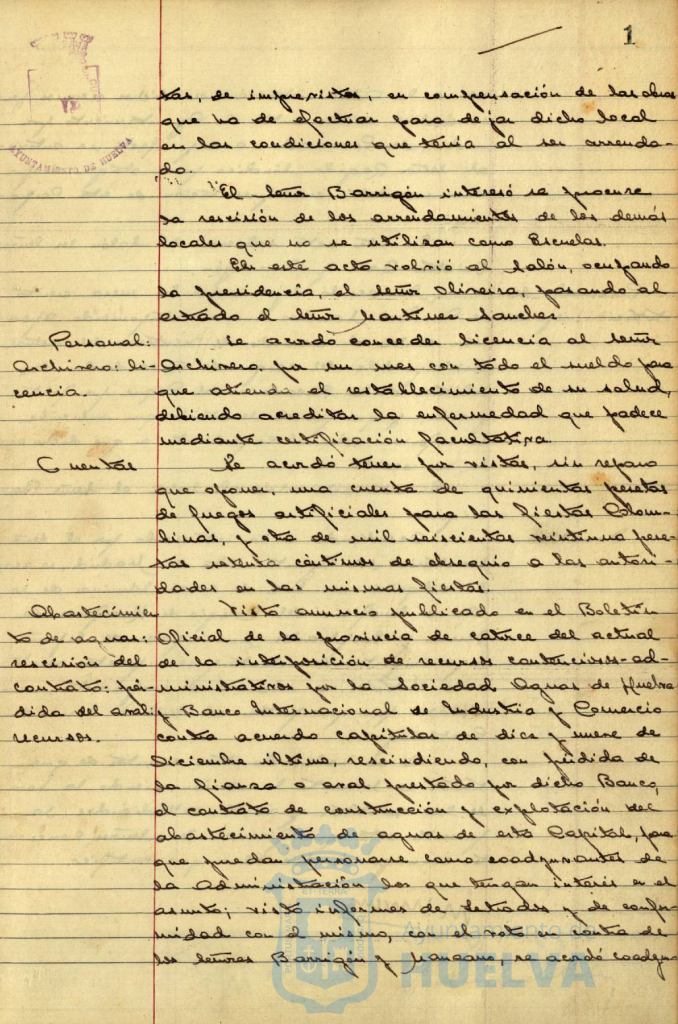 1
AYUNTAMIENTO DE HUELVA
tas, de imprevistos, en compensación de las obras
que ha de efectuar para dejar dicho local
en las condiciones que tenía al ser arrenda-
do.
El Señor Barrigón interesó se procure
la rescisión de los arrendamientos de los demás
locales que no se utilizan como Escuelas.
En este acto volvió al salón, ocupando
la presidencia, el Señor Oliveira, pasando al
estrado el Señor Martínez Sánchez
Personal:
Archivero: li-
cencia.
Se acordó conceder licencia al Señor
Archivero, por un mes con todo el sueldo para
que atienda el restablecimiento de su salud,
debiendo acreditar la enfermedad que padece
mediante certificación facultativa
Cuentas
Se acordó tener por vistas, sin reparo
que oponer, una cuenta de quinientas pesetas
de fuegos artificiales para las fiestas Colom-
binas, y otra de mil seiscientas veintiuna pese-
tas setenta céntimos de obsequio a las autori-
dades en las mismas fiestas.
Abastecimien
to de aguas:
rescisión del
contrato: pér-
dida del aval:
recursos.
Visto anuncio publicado en el Boletín
Oficial de la provincia de catorce del actual
de la interposición de recursos contencioso-ad-
ministrativos por la Sociedad Aguas de Huelva
y Banco Internacional de Industria y Comercio
contra acuerdo capitular de diez y nueve de
Diciembre último, rescindiendo, con pérdida de
la fianza o aval prestado por dicho Banco,
el contrato de construcción y explotación del
abastecimiento de aguas de esta Capital, para
que puedan personarse como coadyuvantes de
la Administración los que tengan interés en el
asunto; visto informes de Letrados y de confor-
midad con el mismo, con el voto en contra de
los Señores Barrigón y Manzano, se acordó coadyu-
Ayuntamiento de
HUELVA